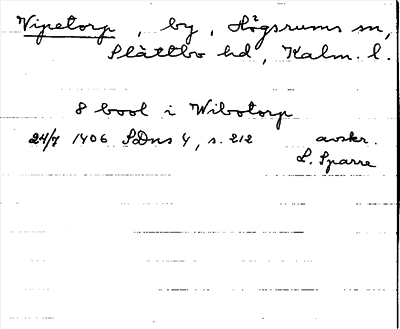 Vipetorp, by, Högsrums sn,
Slättbo hd, Kalm. l.
8 bool i Wibotorp
24/7 1406 SDns 4, s. 212 avskr.
L. Sparre